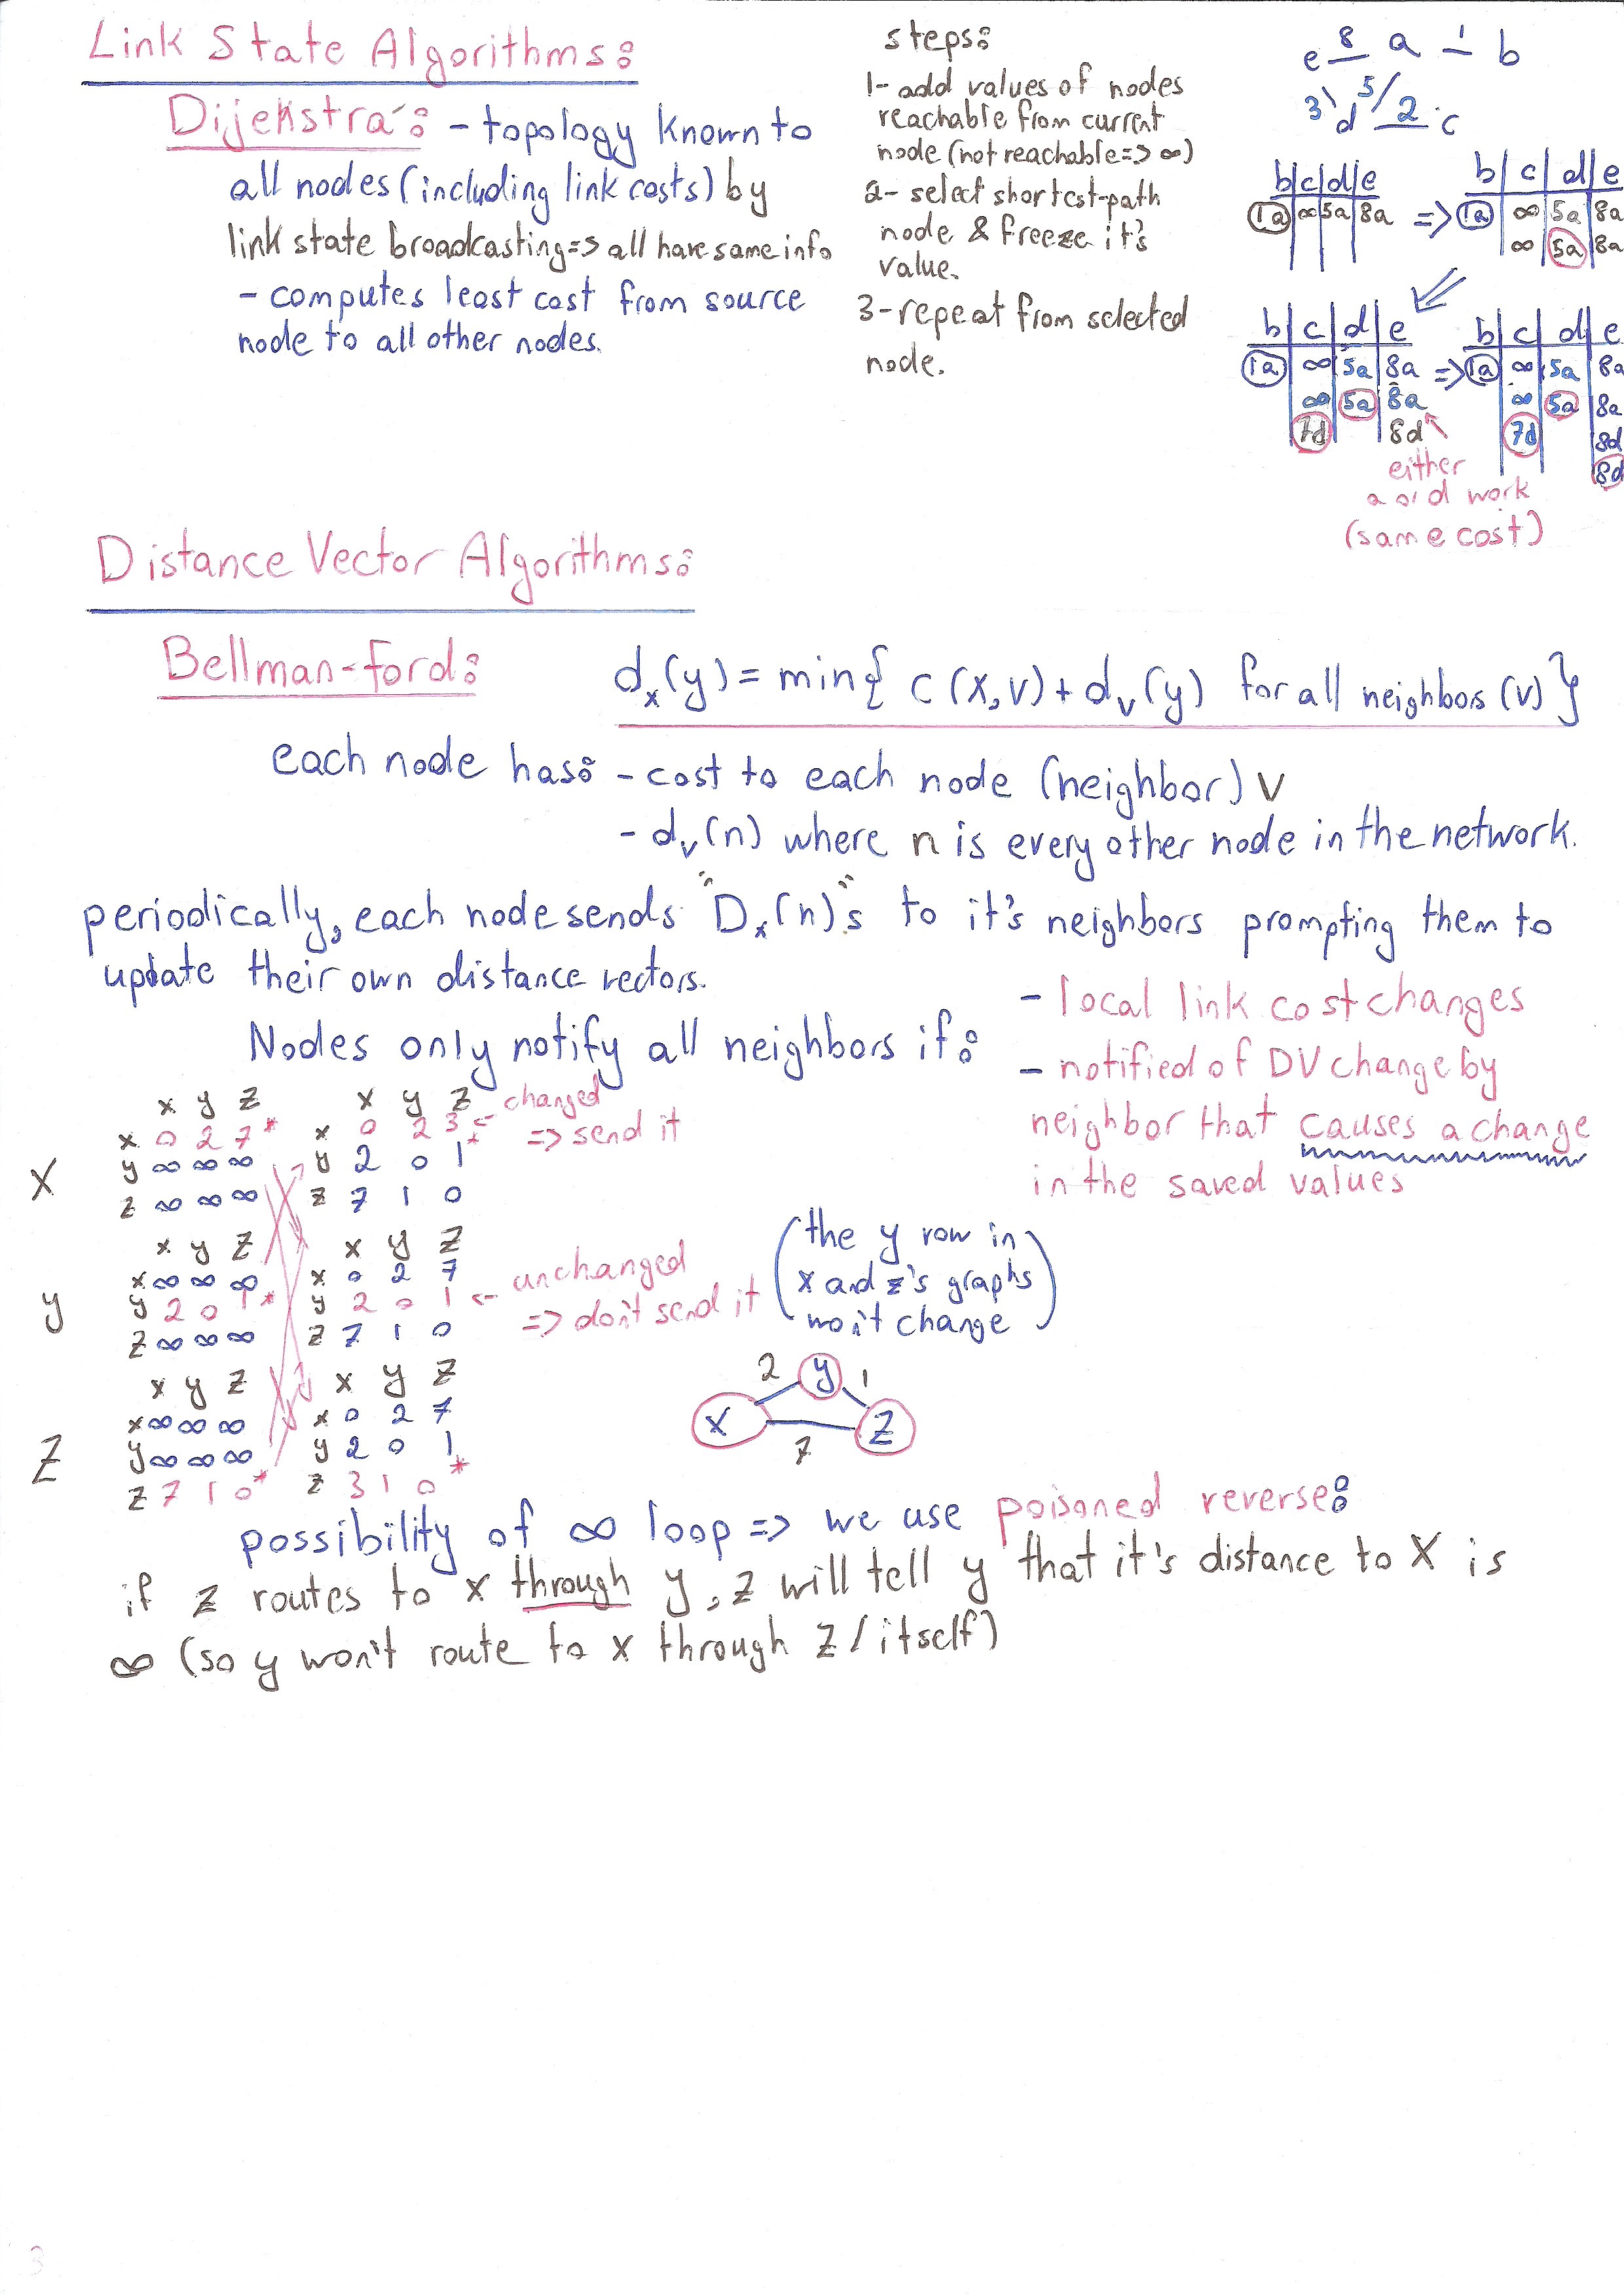 Link State Algorithms:
Dijekstra': - topology known to
all nodes (including link costs) by
link state broadcasting => all have same info
- computes least cost from source
node to all other nodes.
steps:
1- add values of nodes
reachable from current
node (not reachable => ∞)
2- select shortest-path
node & freeze it's
value.
3- repeat from selected
node.
e 8 a 1 b
3 d 5 2 c
b|c|d|e
1a ∞ 5a 8a =>
b|c|d|e
1a ∞ 5a 8a
∞ 5a 8a
b|c|d|e
1a ∞ 5a 8a =>
∞ 5a 8a
7d 8d
either
a or d work
(same cost)
b|c|d|e
1a ∞ 5a 8a
∞ 5a 8a
7d 8d
8d
Distance Vector Algorithms:
Bellman-ford: dx(y) = min{ c(x,v) + dv(y) for all neighbors (v) }
each node has: - cost to each node (neighbor) v
- dv(n) where n is every other node in the network.
periodically, each node sends "Dx(n)"s to it's neighbors prompting them to
update their own distance vectors.
Nodes only notify all neighbors if:
- local link cost changes
- notified of DV change by
neighbor that causes a change
in the saved values
X
x y z
x 0 2 7*
y ∞ ∞ ∞
z ∞ ∞ ∞
x y z
x 0 2 3* <- changed
=> send it
y 2 0 1
z 7 1 0
y
x y z
x ∞ ∞ ∞
y 2 0 1*
z ∞ ∞ ∞
x y z
x 0 2 7
y 2 0 1 <- unchanged
=> don't send it
z 7 1 0
(the y row in
x and z's graphs
won't change)
Z
x y z
x ∞ ∞ ∞
y ∞ ∞ ∞
z 7 1 0*
x y z
x 0 2 7
y 2 0 1
z 3 1 0*
2 y 1
x z
7
possibility of ∞ loop => we use poisoned reverse:
if z routes to x through y, z will tell y that it's distance to X is
∞ (so y won't route to x through z/itself)
3